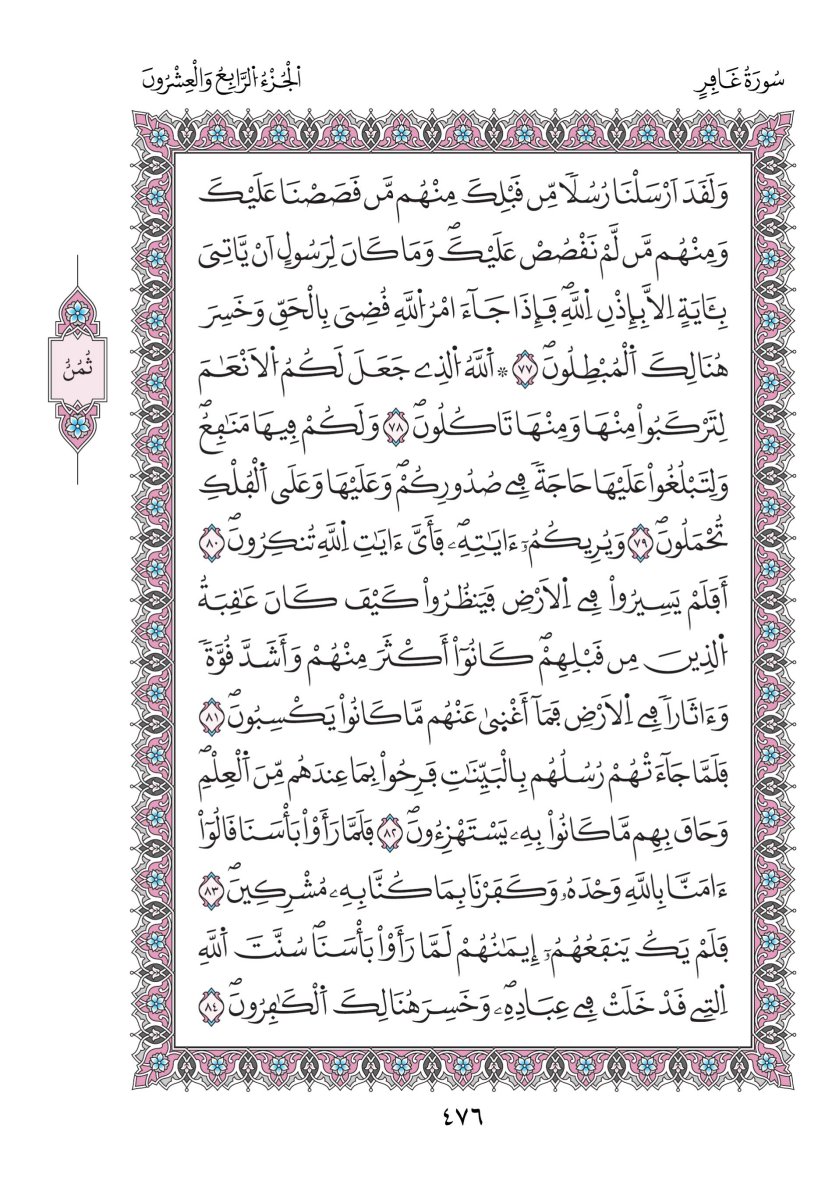 سُورَةُ غَافِرٍ
اَلْجُزْءُ اَلرَّابِعُ وَالْعِشْرُونَ
وَلَقَدَ اَرْسَلْنَا رُسُلاٗ مِّن قَبْلِكَ مِنْهُم مَّن قَصَصْنَا عَلَيْكَ
وَمِنْهُم مَّن لَّمْ نَقْصُصْ عَلَيْكَۖ وَمَا كَانَ لِرَسُولٍ اَنْ يَّاتِيَ
بِـَٔايَةٍ اِلاَّ بِإِذْنِ اِ۬للَّهِۖ فَإِذَا جَآءَ امْرُ اُ۬للَّهِ قُضِيَ بِالْحَقِّ وَخَسِرَ
هُنَالِكَ اَ۬لْمُبْطِلُونَۖ ٧٧ ۞ اَ۬للَّهُ اُ۬لذِے جَعَلَ لَكُمُ اُ۬لَانْعَٰمَ
لِتَرْكَبُواْ مِنْهَا وَمِنْهَا تَاكُلُونَۖ ٧٨ وَلَكُمْ فِيهَا مَنَٰفِعُۖ
وَلِتَبْلُغُواْ عَلَيْهَا حَاجَةٗ فِے صُدُورِكُمْۖ وَعَلَيْهَا وَعَلَى اَ۬لْفُلْكِ
تُحْمَلُونَۖ ٧٩ وَيُرِيكُمُۥٓ ءَايَٰتِهِۦۖ فَأَيَّ ءَايَٰتِ اِ۬للَّهِ تُنكِرُونَۖ ٨٠
أَفَلَمْ يَسِيرُواْ فِے اِ۬لَارْضِ فَيَنظُرُواْ كَيْفَ كَانَ عَٰقِبَةُ
اُ۬لذِينَ مِن قَبْلِهِمْۖ كَانُوٓاْ أَكْثَرَ مِنْهُمْ وَأَشَدَّ قُوَّةٗ
وَءَاثَاراٗ فِے اِ۬لَارْضِ فَمَآ أَغْن۪يٰ عَنْهُم مَّا كَانُواْ يَكْسِبُونَۖ ٨١
فَلَمَّا جَآءَتْهُمْ رُسُلُهُم بِالْبَيِّنَٰتِ فَرِحُواْ بِمَا عِندَهُم مِّنَ اَ۬لْعِلْمِۖ
وَحَاقَ بِهِم مَّا كَانُواْ بِهِۦ يَسْتَهْزِءُونَۖ ٨٢ فَلَمَّا رَأَوْاْ بَأْسَنَا قَالُوٓاْ
ءَامَنَّا بِاللَّهِ وَحْدَهُۥ وَكَفَرْنَا بِمَا كُنَّا بِهِۦ مُشْرِكِينَۖ ٨٣
فَلَمْ يَكُ يَنفَعُهُمُۥٓ إِيمَٰنُهُمْ لَمَّا رَأَوْاْ بَأْسَنَاۖ سُنَّتَ اَ۬للَّهِ
اِ۬لتِے قَدْ خَلَتْ فِے عِبَادِهِۦۖ وَخَسِرَ هُنَالِكَ اَ۬لْكَٰفِرُونَۖ ٨٤
ثُمُنُ
٤٧٦